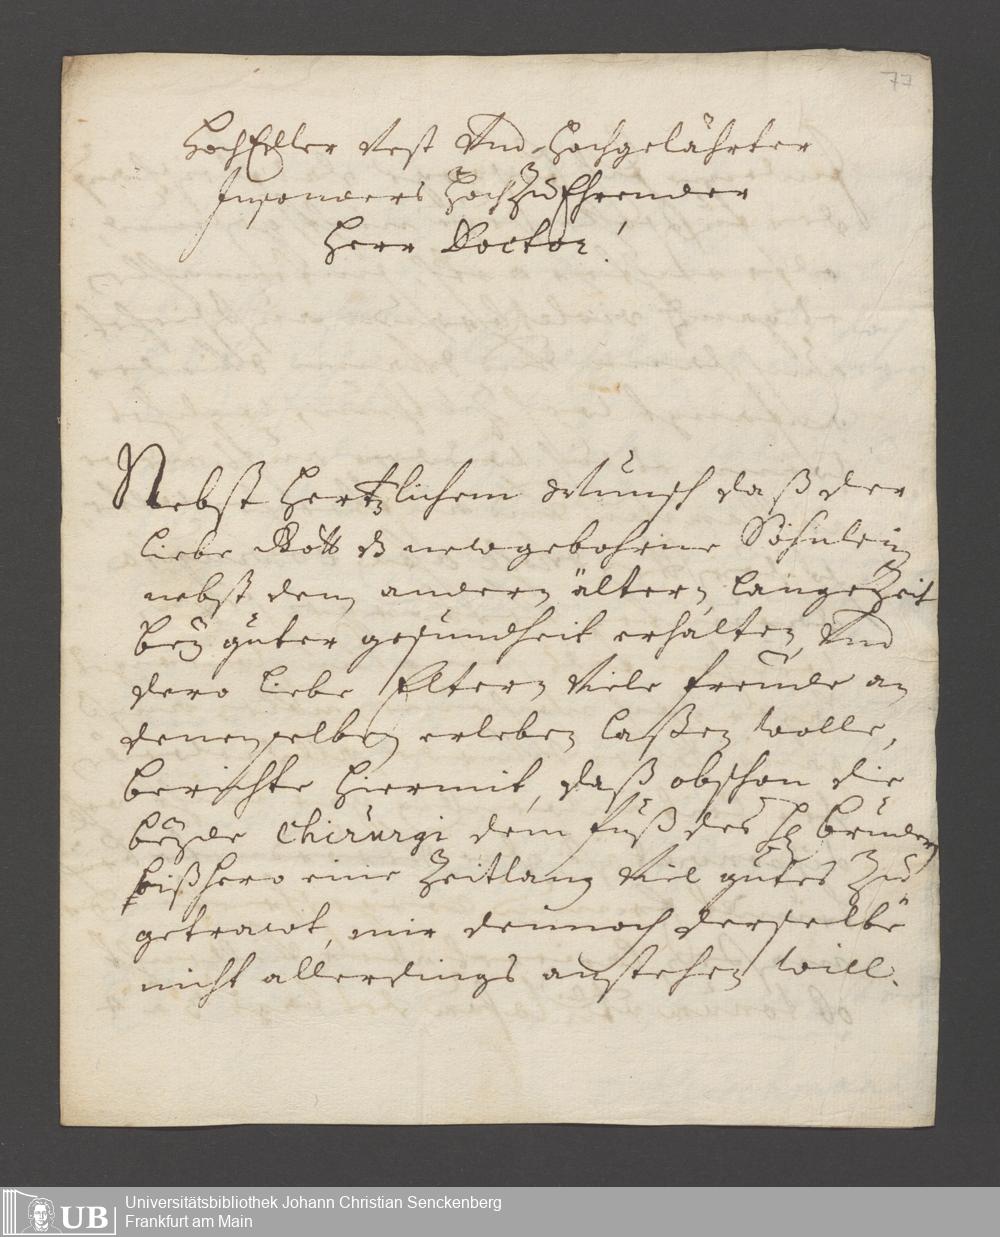 77
HochEdler Vest Und Hochgelährter
Insonders HochZuEhrender
Herr Doctor!
Nebst Hertzlichem Wunsch daß der
liebe Gott ds newgebohrne Söhnlein
nebst dem andern ältern, lange Zeit
bey guter gesundheit erhalten, Und
dero liebe Eltern Viele freude an
denenselben erleben laßen wolle,
berichte hiermit, daß obschon die
beyde Chirurgi dem fuß des H. bruders
bißhero eine Zeitlang Viel gutes Zu
getrawt, mir dennoch derselbe
nicht allerdings anstehen will.
UB
Universitätsbibliothek Johann Christian Senckenberg
Frankfurt am Main